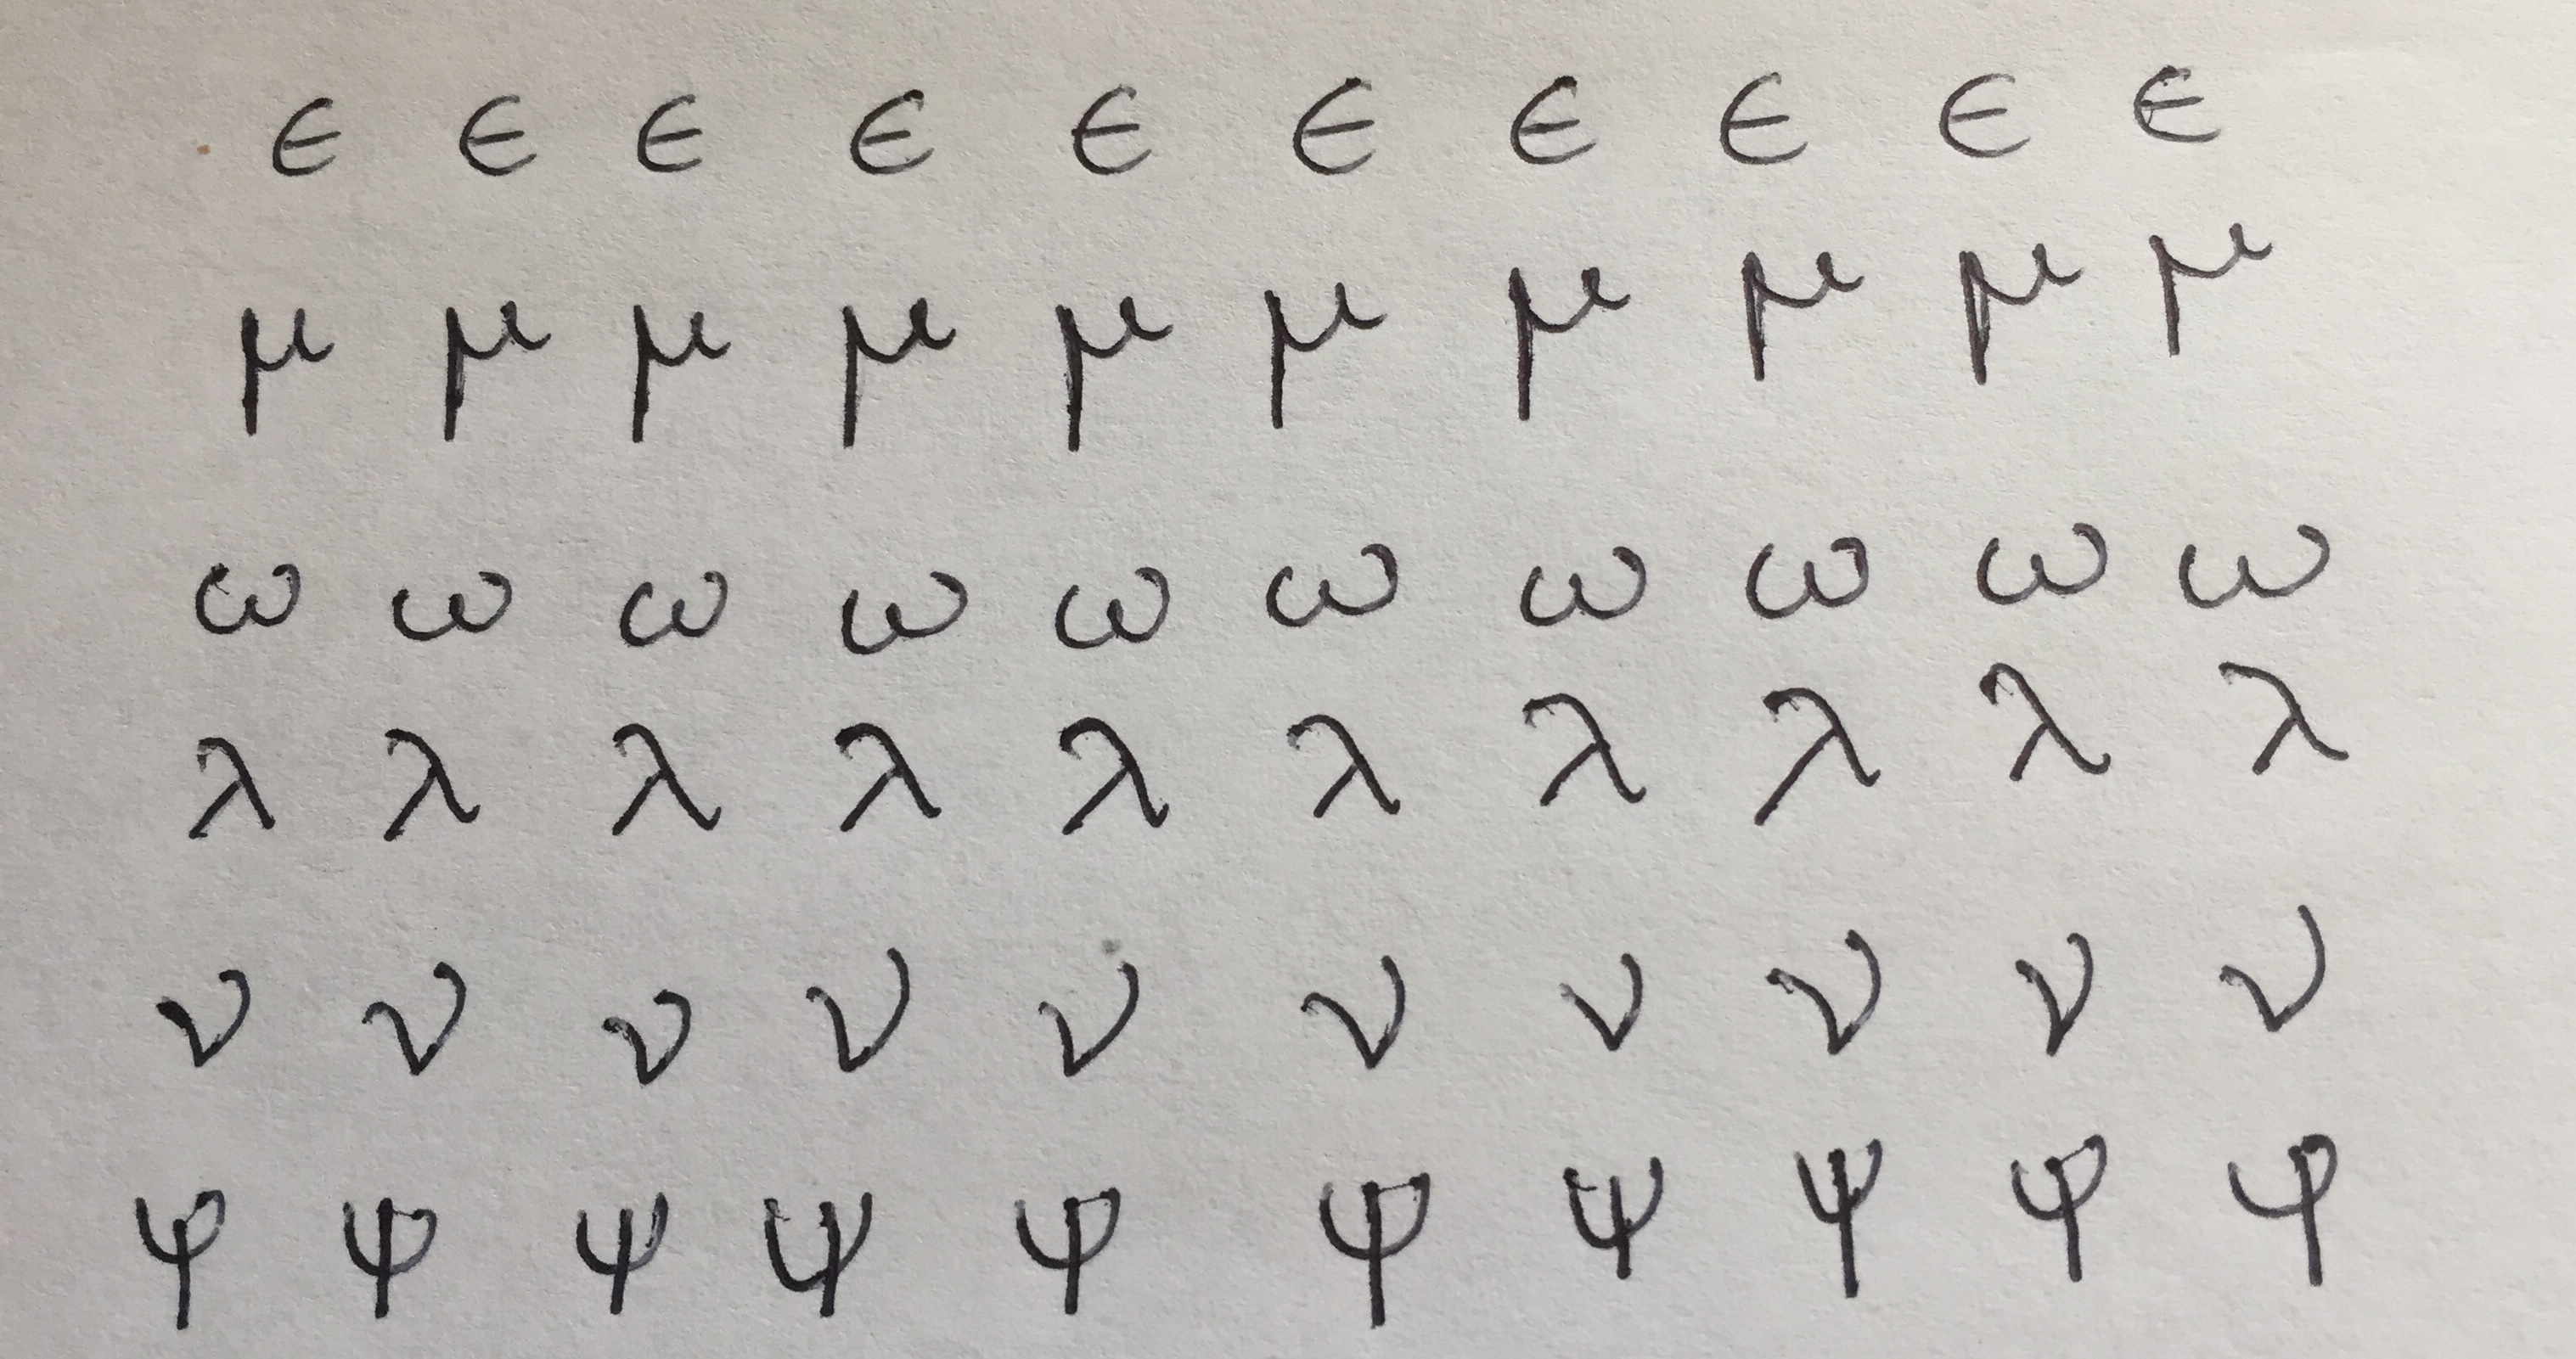 ϵ ϵ ϵ ϵ ϵ ϵ ϵ ϵ ϵ ϵ
μ μ μ μ μ μ μ μ μ μ
ω ω ω ω ω ω ω ω ω ω
λ λ λ λ λ λ λ λ λ λ
ν ν ν ν ν ν ν ν ν ν
ψ ψ ψ ψ ψ ψ ψ ψ ψ ψ